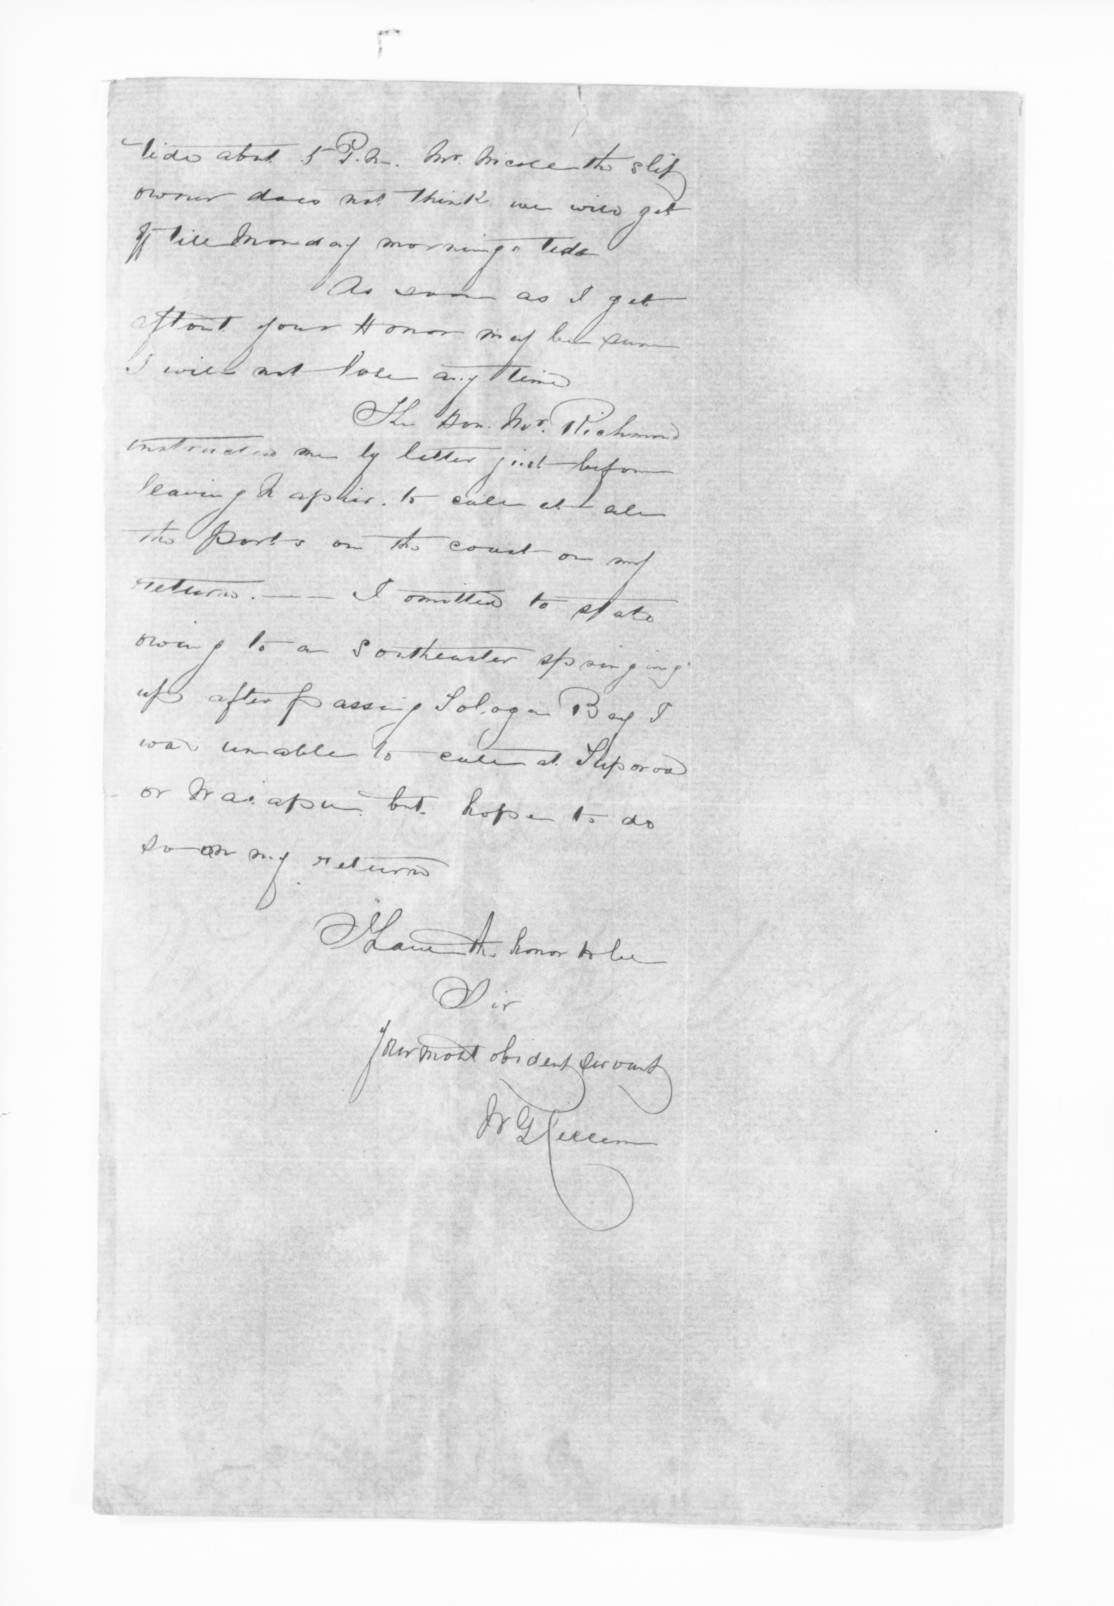 tide about 5 P.M. Mr. Nicole the slip
owner does not think we will get
off till Monday mornings tide
As soon as I get
afloat your Honor may be sure
I will not lose any time
The Hon. Mr. Richmond
instructed me by letter just before
leaving Napier. to call at all
the ports on the coast on my
return. —— I omitted to state
owing to a Southeaster springing
up after passing Tologa Bay I
was unable to call at Tuporoa
or Waiapu but hope to do
so on my return
I Have the honor to be
Sir
Your most obident servant